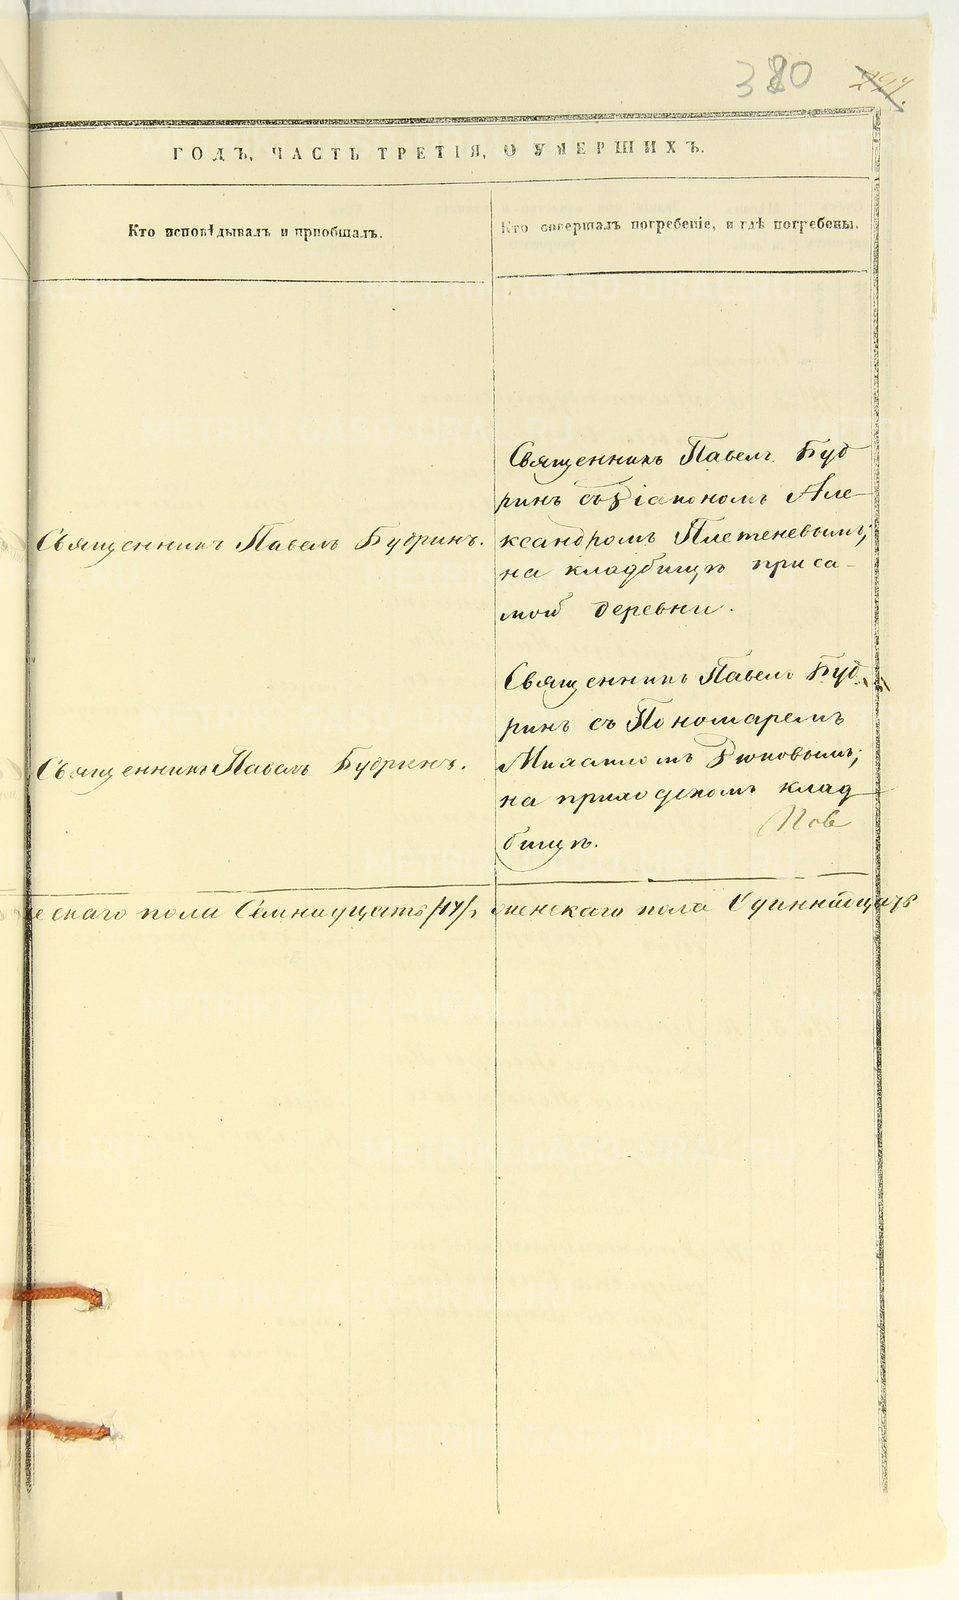 380
297.
ГОДЪ, ЧАСТЬ ТРЕТІЯ, О УМЕРШИХЪ.
Кто исповѣдывалъ и пріобщалъ.
Кто совершалъ погребеніе, и гдѣ погребены.
Священникъ Павелъ Будринъ.
Священникъ Павелъ Буд
ринъ съ Діакономъ Але-
ксандромъ Плетеневымъ;
на кладбищѣ при са-
мой деревни.
Священникъ Павелъ Будринъ.
Священникъ Павелъ Буд
ринъ съ Пономаремъ
Михаиломъ
на приходскомъ клад
бищѣ.
скаго пола Семнадцать /17/, женскаго пола Одиннадцать
METRIKI.GASO-URAL.RU